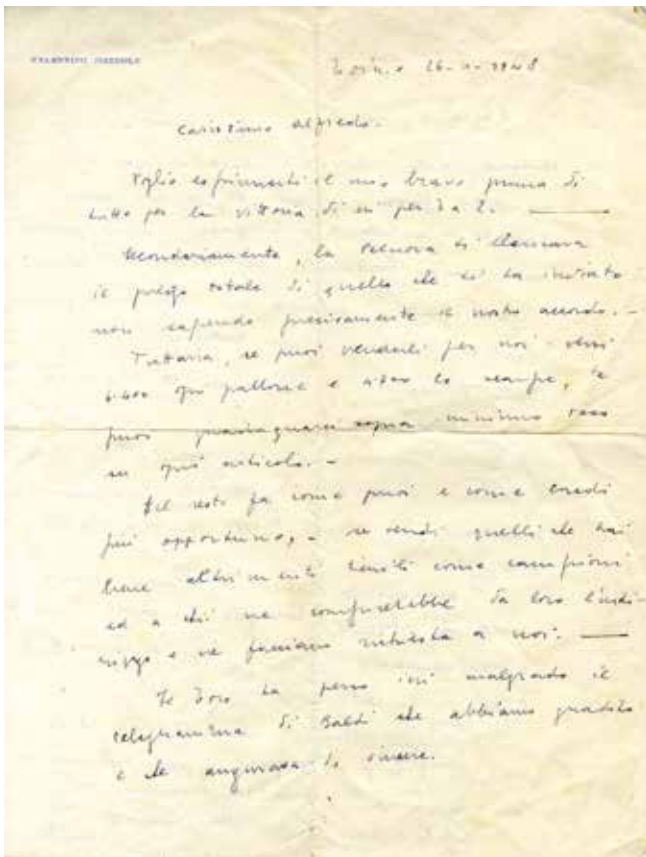 VALENTINO MAZZOLA
Torino 26-1-1948
Carissimo Alfredo.
Voglio esprimerti il mio bravo prima di
tutto per la vittoria di ieri per 3 a 2.
Secondariamente, la
il prezzo totale di quello che ti ha inviato
non sapendo precisamente il nostro accordo. -
Tuttavia, se puoi venderli per noi
ogni pallone e le scarpe, te
puoi guadagnarci sopra minimo
su ogni articolo. -
Del resto fa come puoi e come credi
più opportuno, - se vendi quelli che hai
bene altrimenti tienili come campioni
ed a chi ne comprerebbe da loro l'indi-
rizzo e ne facciano richiesta a noi.
Il Toro ha perso ieri malgrado il
telegramma di Baldi che abbiamo gradito
e che augurava di vincere.